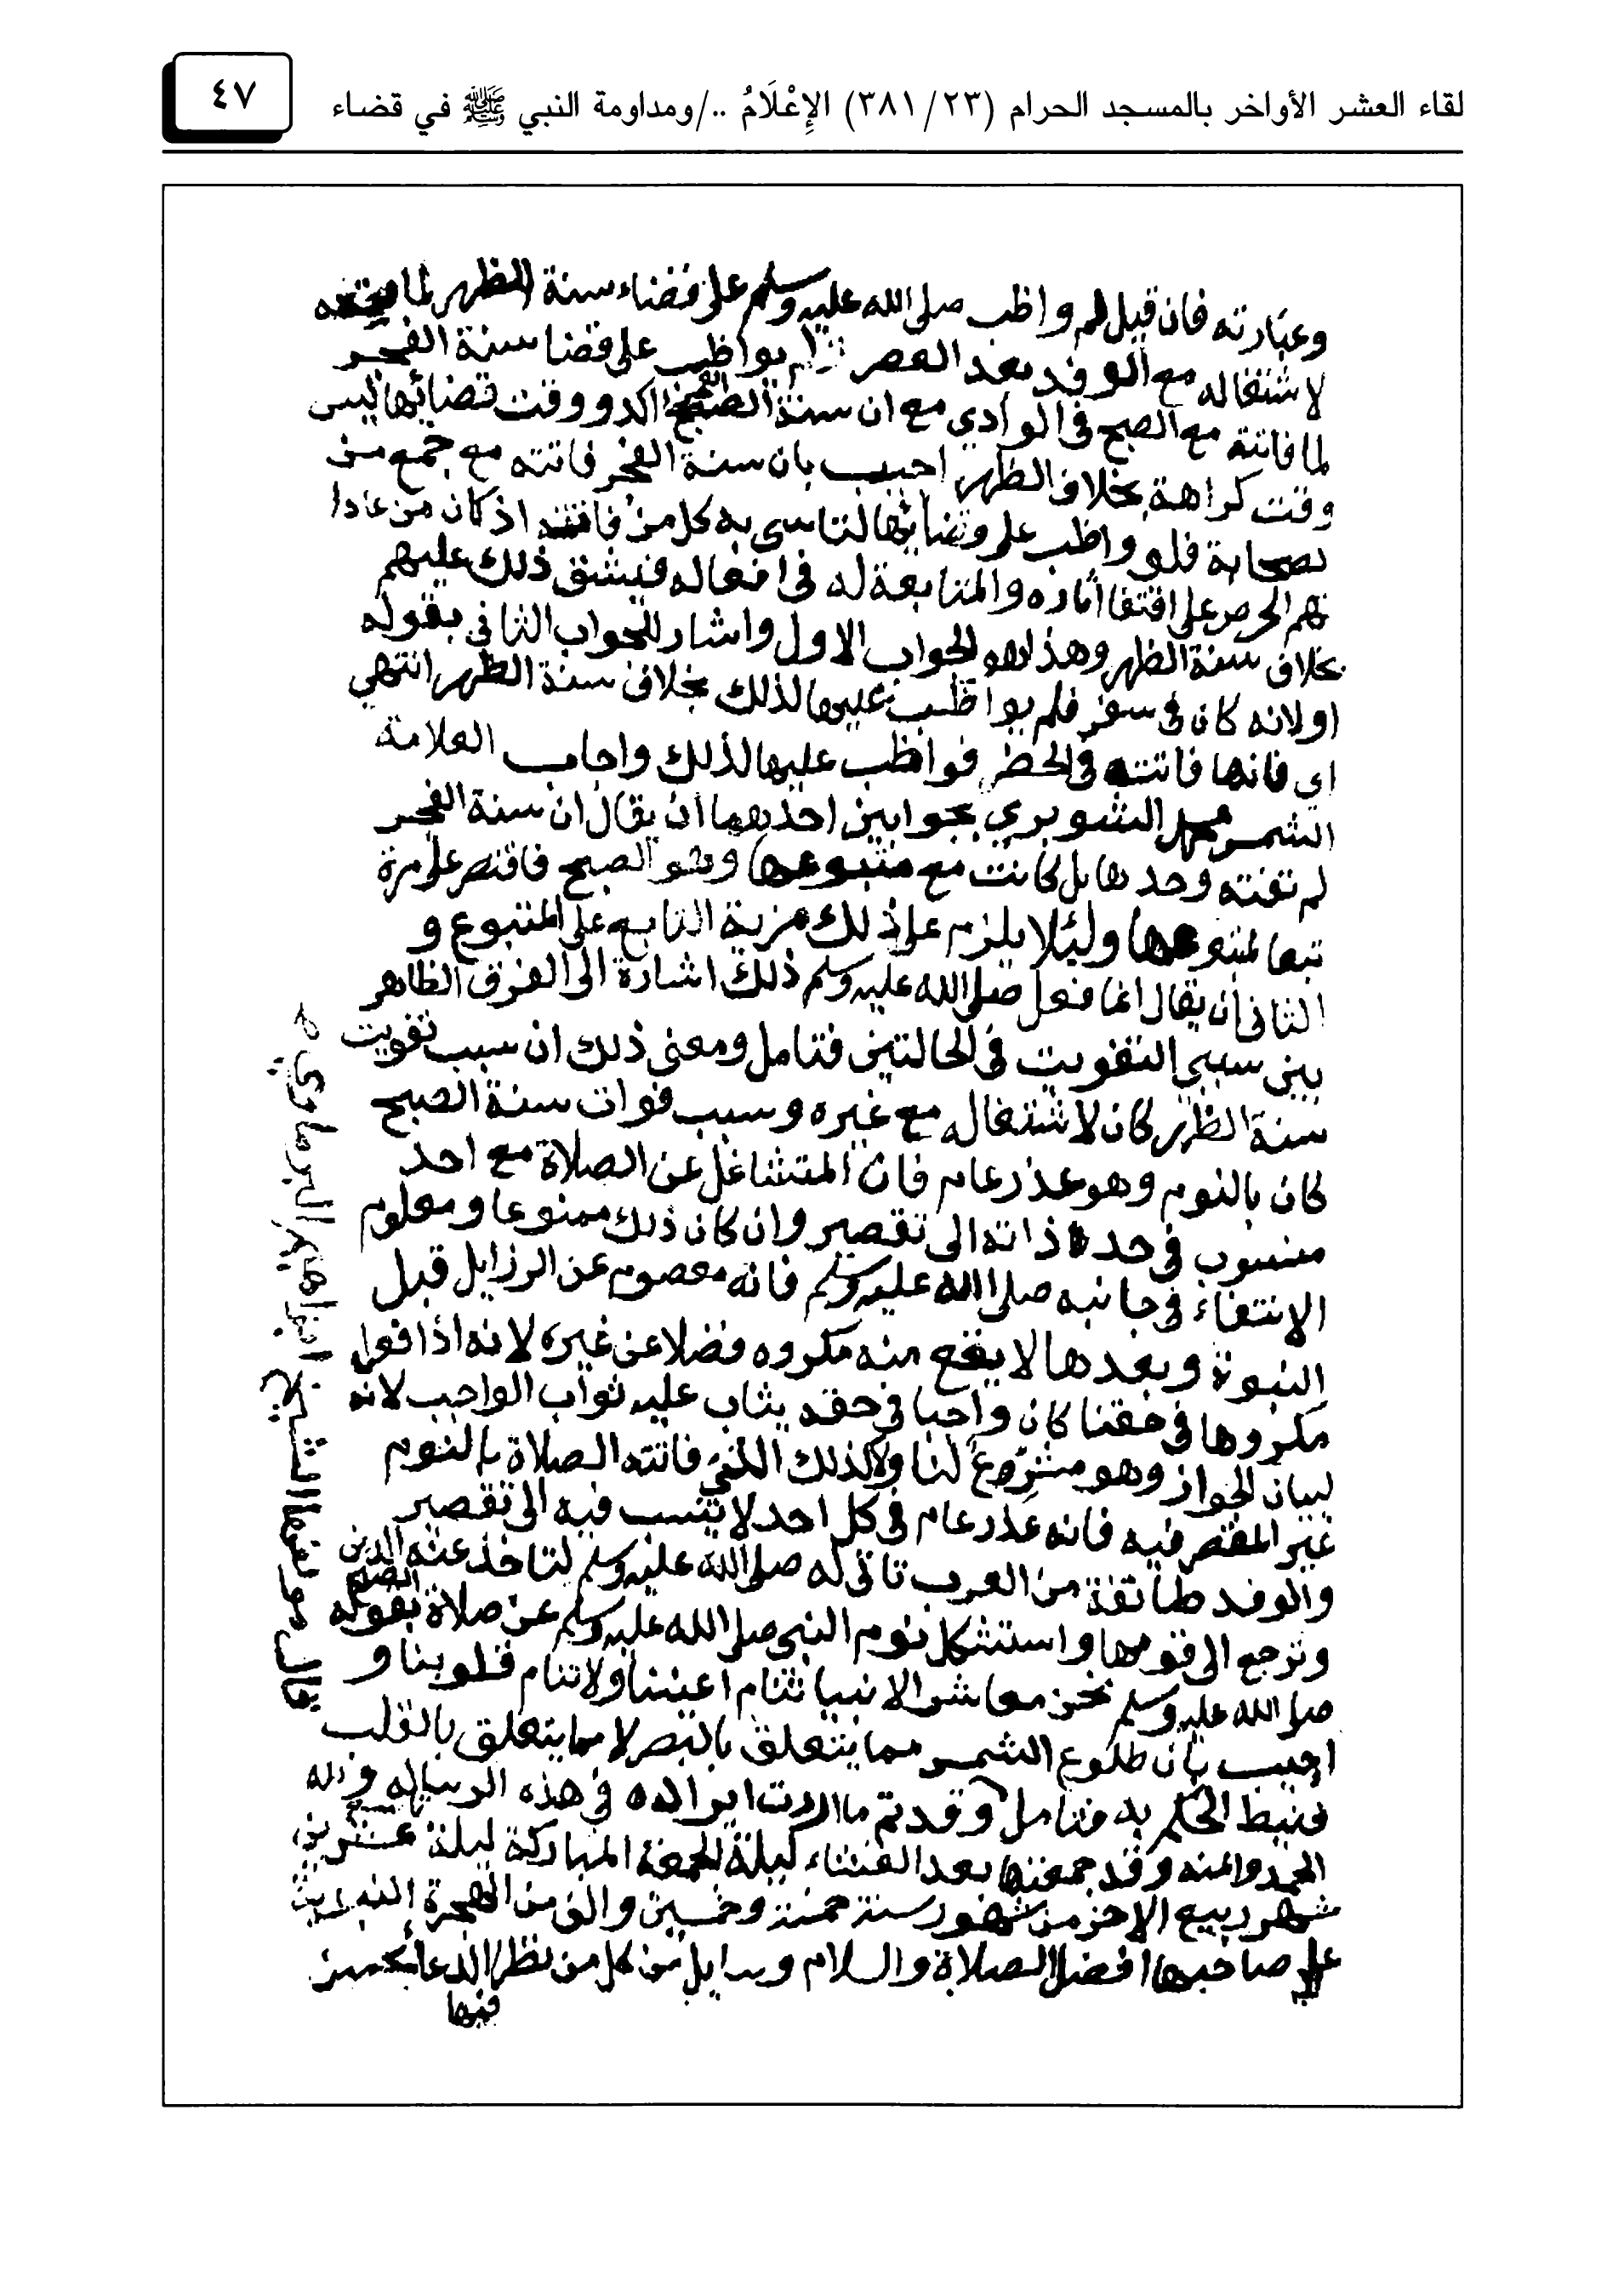 لقاء العشر الأواخر بالمسجد الحرام (٣٨١/٢٣) الإِعْلَامُ ../ومداومة النبي ﷺ في قضاء
٤٧
وعبارته فان قيل لم واظب صلى الله عليه وسلم على قضاء سنة الظهر لما
لاشتغاله مع الوفد بعد العصر ولم يواظب على قضا سنة الفجر
لما فاتته مع الصبح فى الوادي مع ان سنة الفجر اكد ووقت قضائها ليس
وقت كراهة بخلاف الظهر اجيب بان سنة الفجر فاتته مع جمع من
لصحابة فلو واظب على قضائها لتاسى به كل من فاتته اذ كان من عادا
تهم الحرص على اقتفا اثاره والمتابعة له فى افعاله فيشق ذلك عليهم
بخلاف سنة الظهر وهذا هو الجواب الاول واشار للجواب الثانى بقوله
او لانه كان فى سفر فلم يواظب عليها لذلك بخلاف سنة الظهر انتهى
اي فانها فاتته فى الحضر فواظب عليها لذلك واجاب العلامة
الشمس محمد الشوبري بجوابين احدهما ان يقال ان سنة الفجر
لم تفته وحدها بل كانت مع متبوعها وهو الصبح فاقتصر على مرة
تبعا لمتبوعها ولئلا يلزم على ذلك مزية التابع على المتبوع و
الثانى ان يقال انما فعل صلى الله عليه وسلم ذلك اشارة الى الفرق الظاهر
بين سببي التفويت فى الحالتين فتامل ومعنى ذلك ان سبب تفويت
سنة الظهر كان لاشتغاله مع غيره وسبب فوات سنة الصبح
كان بالنوم وهو عذر عام فان المتشاغل عن الصلاة مع احد
منسوب فى حد ذاته الى تقصير وان كان ذلك ممنوعا ومعلوم
الانتفاء فى جانبه صلى الله عليه وسلم فانه معصوم عن الرزايل قبل
النبوة وبعدها لا يقع منه مكروه فضلا عن غيره لانه اذا فعل
مكروها فى حقنا كان واجبا فى حقه يثاب عليه ثواب الواجب لانه
لبيان الجواز وهو مشرع لنا ولا كذلك الذي فاتته الصلاة بالنوم
غير المقصر فيه فانه عذر عام فى كل احد لا ينسب فيه الى تقصير
والوفد طائفة من العرب تاتى له صلى الله عليه وسلم لتاخذ عنه الدين
وترجع الى قومها واستشكل نوم النبى صلى الله عليه وسلم عن صلاة الصبح بقوله
صلى الله عليه وسلم نحن معاشر الانبيا تنام اعيننا ولا تنام قلوبنا و
اجيب بان طلوع الشمس مما يتعلق بالبصر لا مما يتعلق بالقلب
فنيط الحكم به فتامل وقد تم ما اردت ايراده فى هذه الرساله ولله
الحمد والمنه وقد جمعتها بعد العشاء ليلة الجمعة المباركة ليلة عشرين
شهر ربيع الاخر من شهور سنة خمسة وخمسين والف من الهجرة النبوية
على صاحبها افضل الصلاة والسلام وسايل من كل من نظر الدعا بحسن
فيها
قال مولفها الشيخ ابراهيم البرماوي